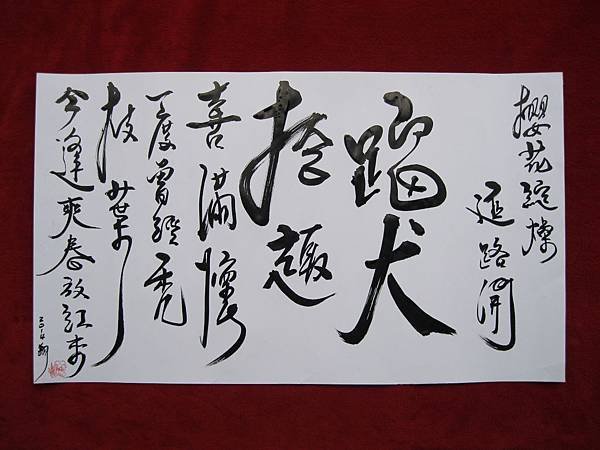 櫻花綻燦
延路開
蹓犬
拾趣
喜滿懷
一度曾經禿
枝葉
今逢爽春放紅來
2014